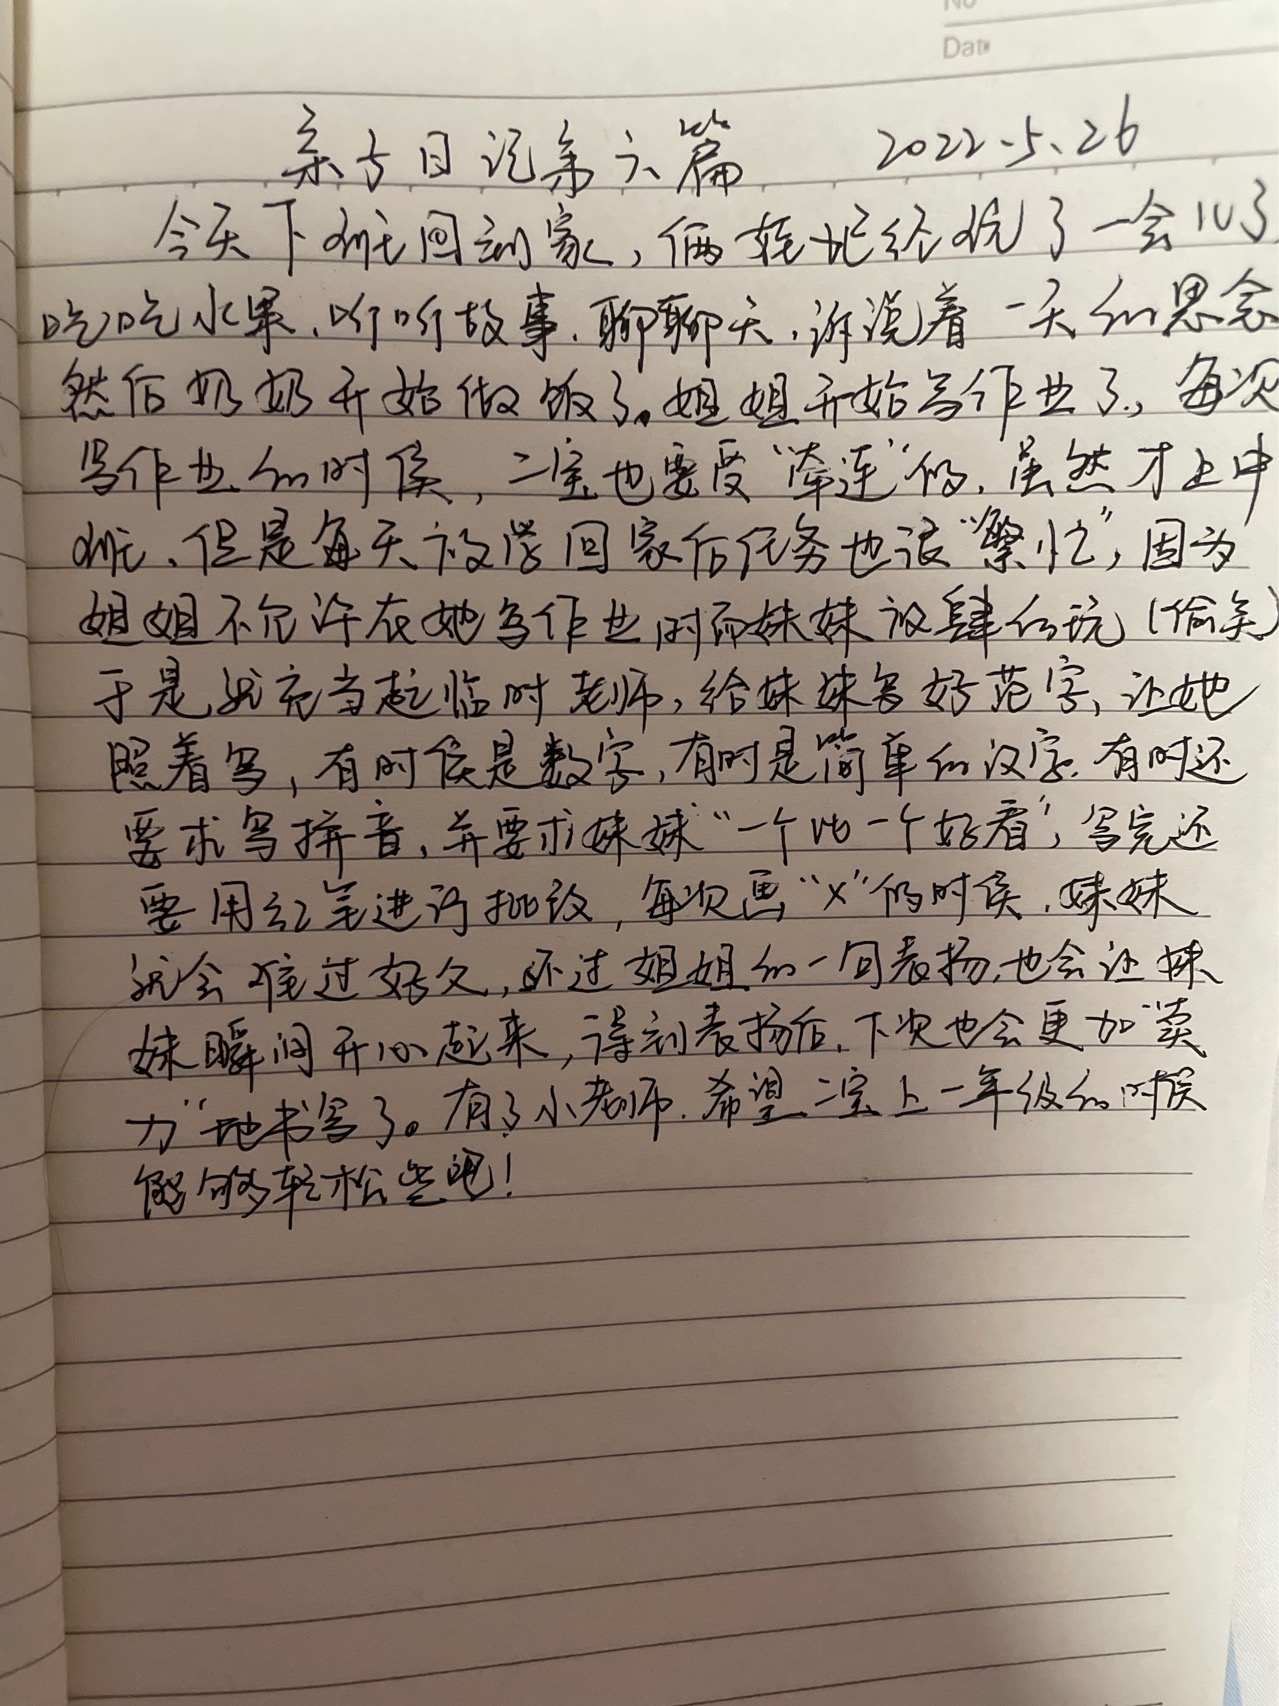 No
Date
亲子日记第六篇 2022.5.26
今天下班回到家，俩娃已经玩了一会儿了
吃吃水果、听听故事、聊聊天，诉说着一天的思念
然后奶奶开始做饭了。姐姐开始写作业了，每次
写作业的时候，二宝也要受“牵连”的，虽然才上中
班、但是每天放学回家后任务也很“繁忙”，因为
姐姐不允许在她写作业时而妹妹放肆的玩（偷笑）
于是就充当起临时老师，给妹妹写好范字、让她
照着写，有时候是数字，有时是简单的汉字、有时还
要求写拼音、并要求妹妹“一个比一个好看”，写完还
要用红笔进行批改，每次画“×”的时候，妹妹
就会难过好久，不过姐姐的一句表扬，也会让妹
妹瞬间开心起来，得到表扬后，下次也会更加“卖
力”地书写了。有了小老师，希望二宝上一年级的时候
能够轻松些吧！